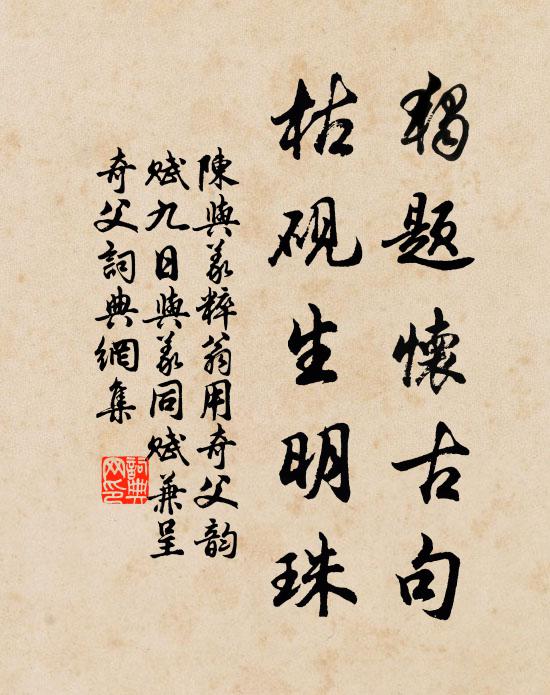 獨題懷古句
枯硯生明珠
陳與義粹翁用奇父韵
賦九日與義同賦兼呈
奇父詞典網集
詞典网印